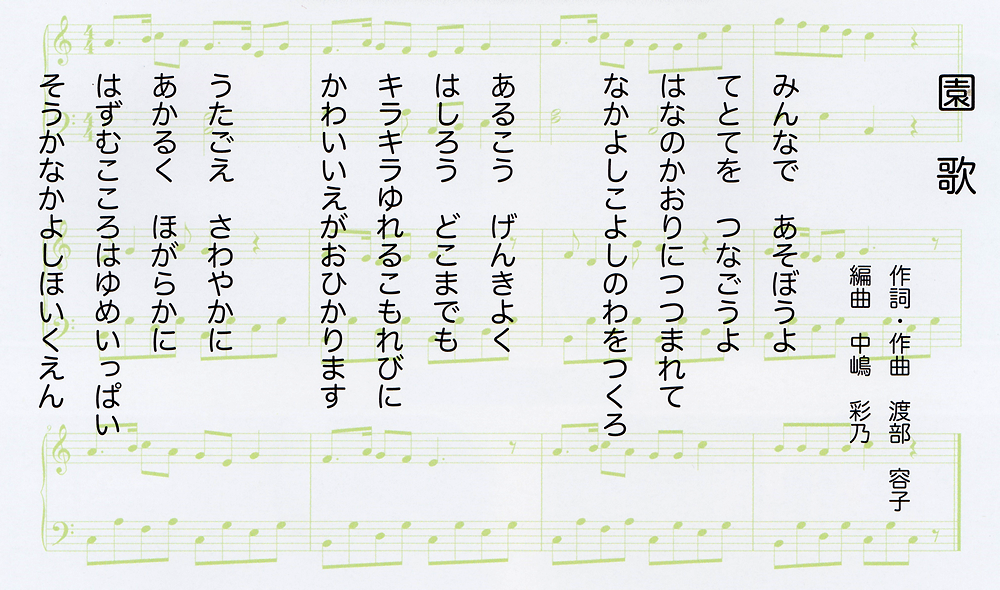 園 歌
作詞・作曲 渡部 容子
編曲 中嶋 彩乃
みんなで あそぼうよ
てとてを つなごうよ
はなのかおりにつつまれて
なかよしこよしのわをつくろ
あるこう げんきよく
はしろう どこまでも
キラキラゆれるこもれびに
かわいいえがおひかります
うたごえ さわやかに
あかるく ほがらかに
はずむこころはゆめいっぱい
そうかなかよしほいくえん